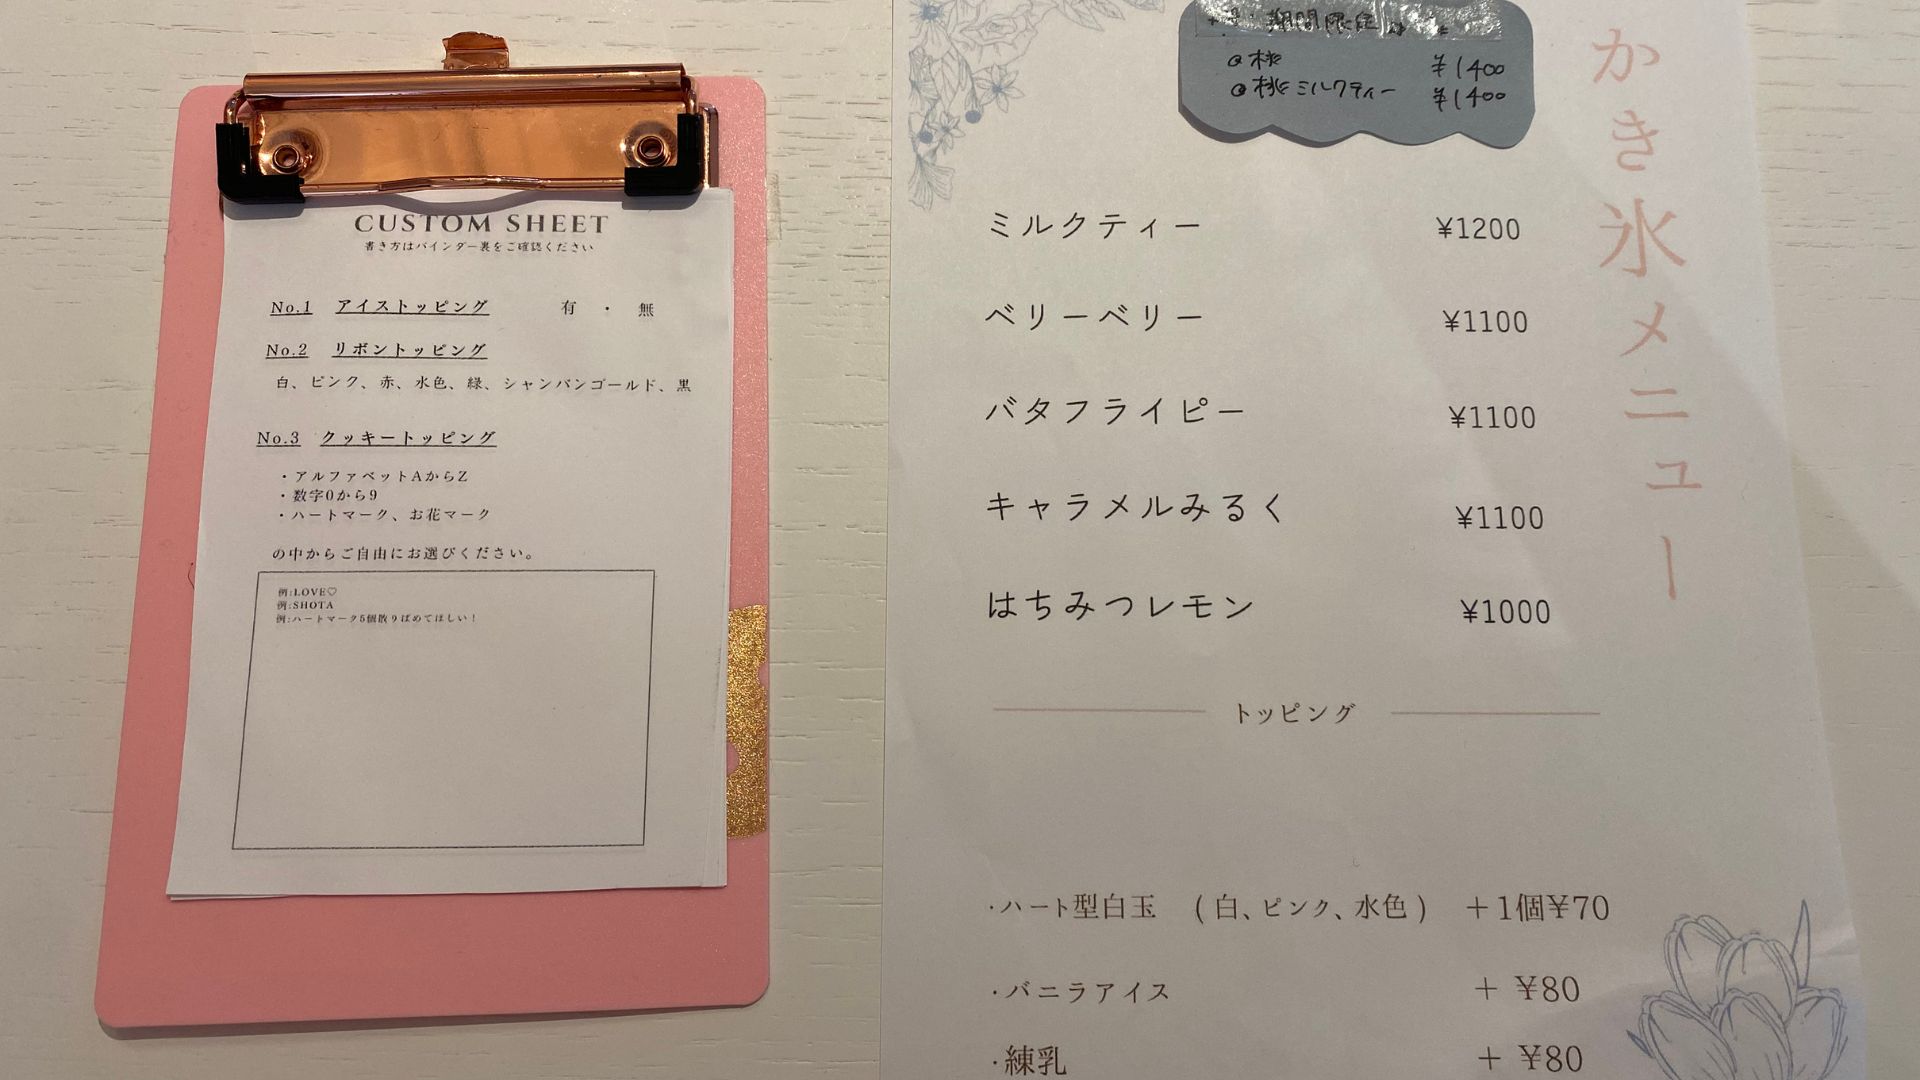 CUSTOM SHEET
書き方はバインダー裏をご確認ください
No.1 アイストッピング 有 ・ 無
No.2 リボントッピング
白、ピンク、赤、水色、緑、シャンパンゴールド、黒
No.3 クッキートッピング
・アルファベットAからZ
・数字0から9
・ハートマーク、お花マーク
の中からご自由にお選びください。
例:LOVE♡
例:SHOTA
例:ハートマーク5個散りばめてほしい！
かき氷メニュー
期間限定
桃 ¥1400
桃ミルクティー ¥1400
ミルクティー ¥1200
ベリーベリー ¥1100
バタフライピー ¥1100
キャラメルみるく ¥1100
はちみつレモン ¥1000
トッピング
・ハート型白玉 (白、ピンク、水色) +1個¥70
・バニラアイス + ¥80
・練乳 + ¥80